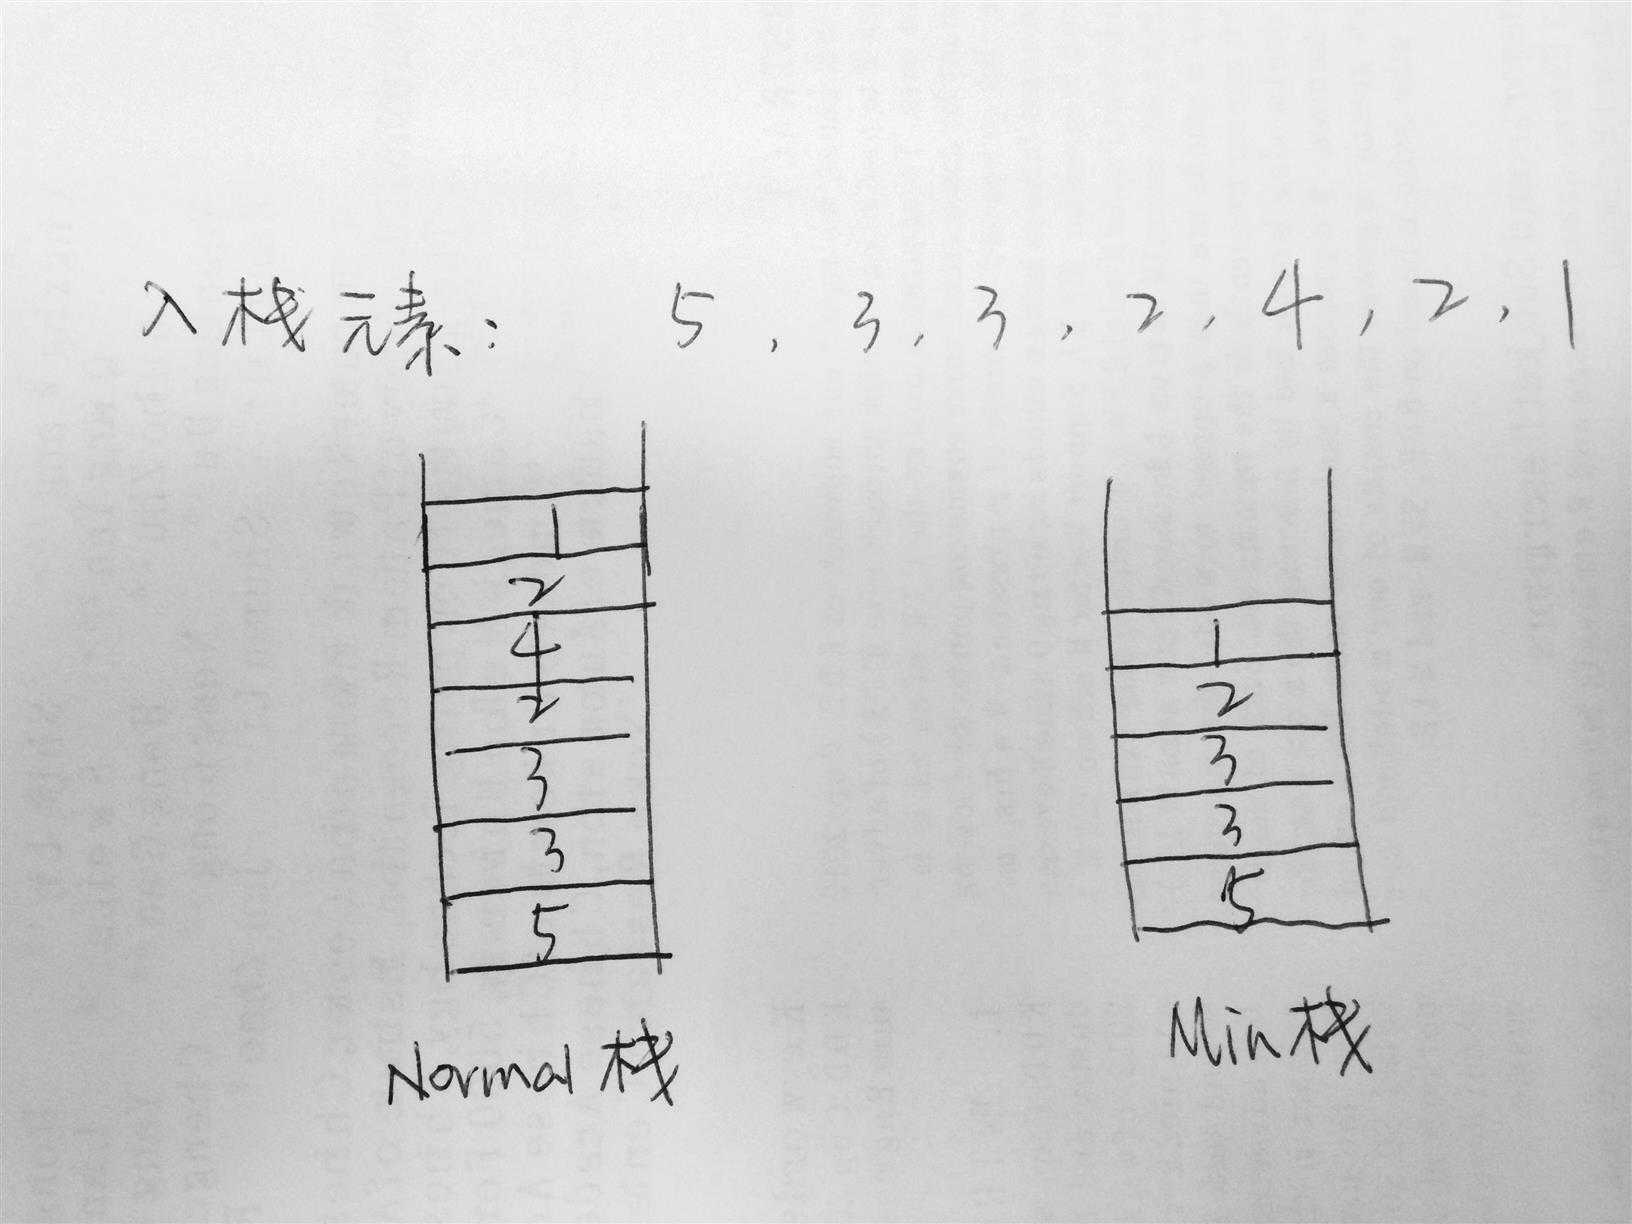 入栈元素： 5 , 3 , 3 , 2 , 4 , 2 , 1
1
2
4
2
3
3
5
Normal 栈
1
2
3
3
5
Min 栈